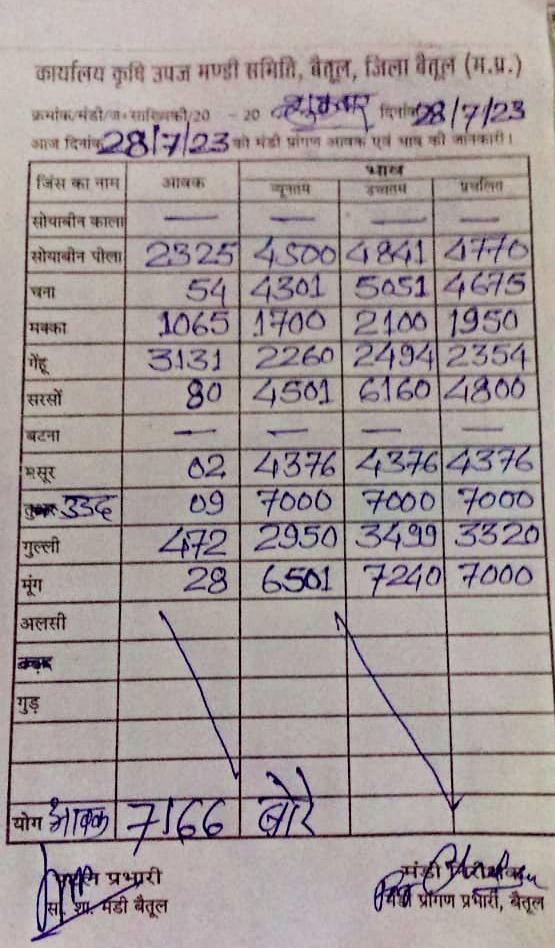 कार्यालय कृषि उपज मण्डी समिति, बैतूल, जिला बैतूल (म.प्र.)
क्रमांक/मंडी/ज-सांख्यिकी/20 - 20 शुक्रवार दिनांक 28/7/23
आज दिनांक 28/7/23 को मंडी प्रांगण आवक एवं भाव की जानकारी।
जिंस का नाम आवक भाव
न्यूनतम उच्चतम प्रचलित
सोयाबीन काला — — — —
सोयाबीन पीला 2325 4500 4841 4770
चना 54 4301 5051 4675
मक्का 1065 1700 2100 1950
गेंहू 3131 2260 2494 2354
सरसों 80 4501 6160 4800
बटना — — — —
मसूर 02 4376 4376 4376
उड़द 09 7000 7000 7000
गुल्ली 472 2950 3499 3320
मूंग 28 6501 7240 7000
अलसी
गुड़
योग आवक 7166 बोरे
प्रभारी मंडी
सां. शा. मंडी बैतूल प्रांगण प्रभारी, बैतूल